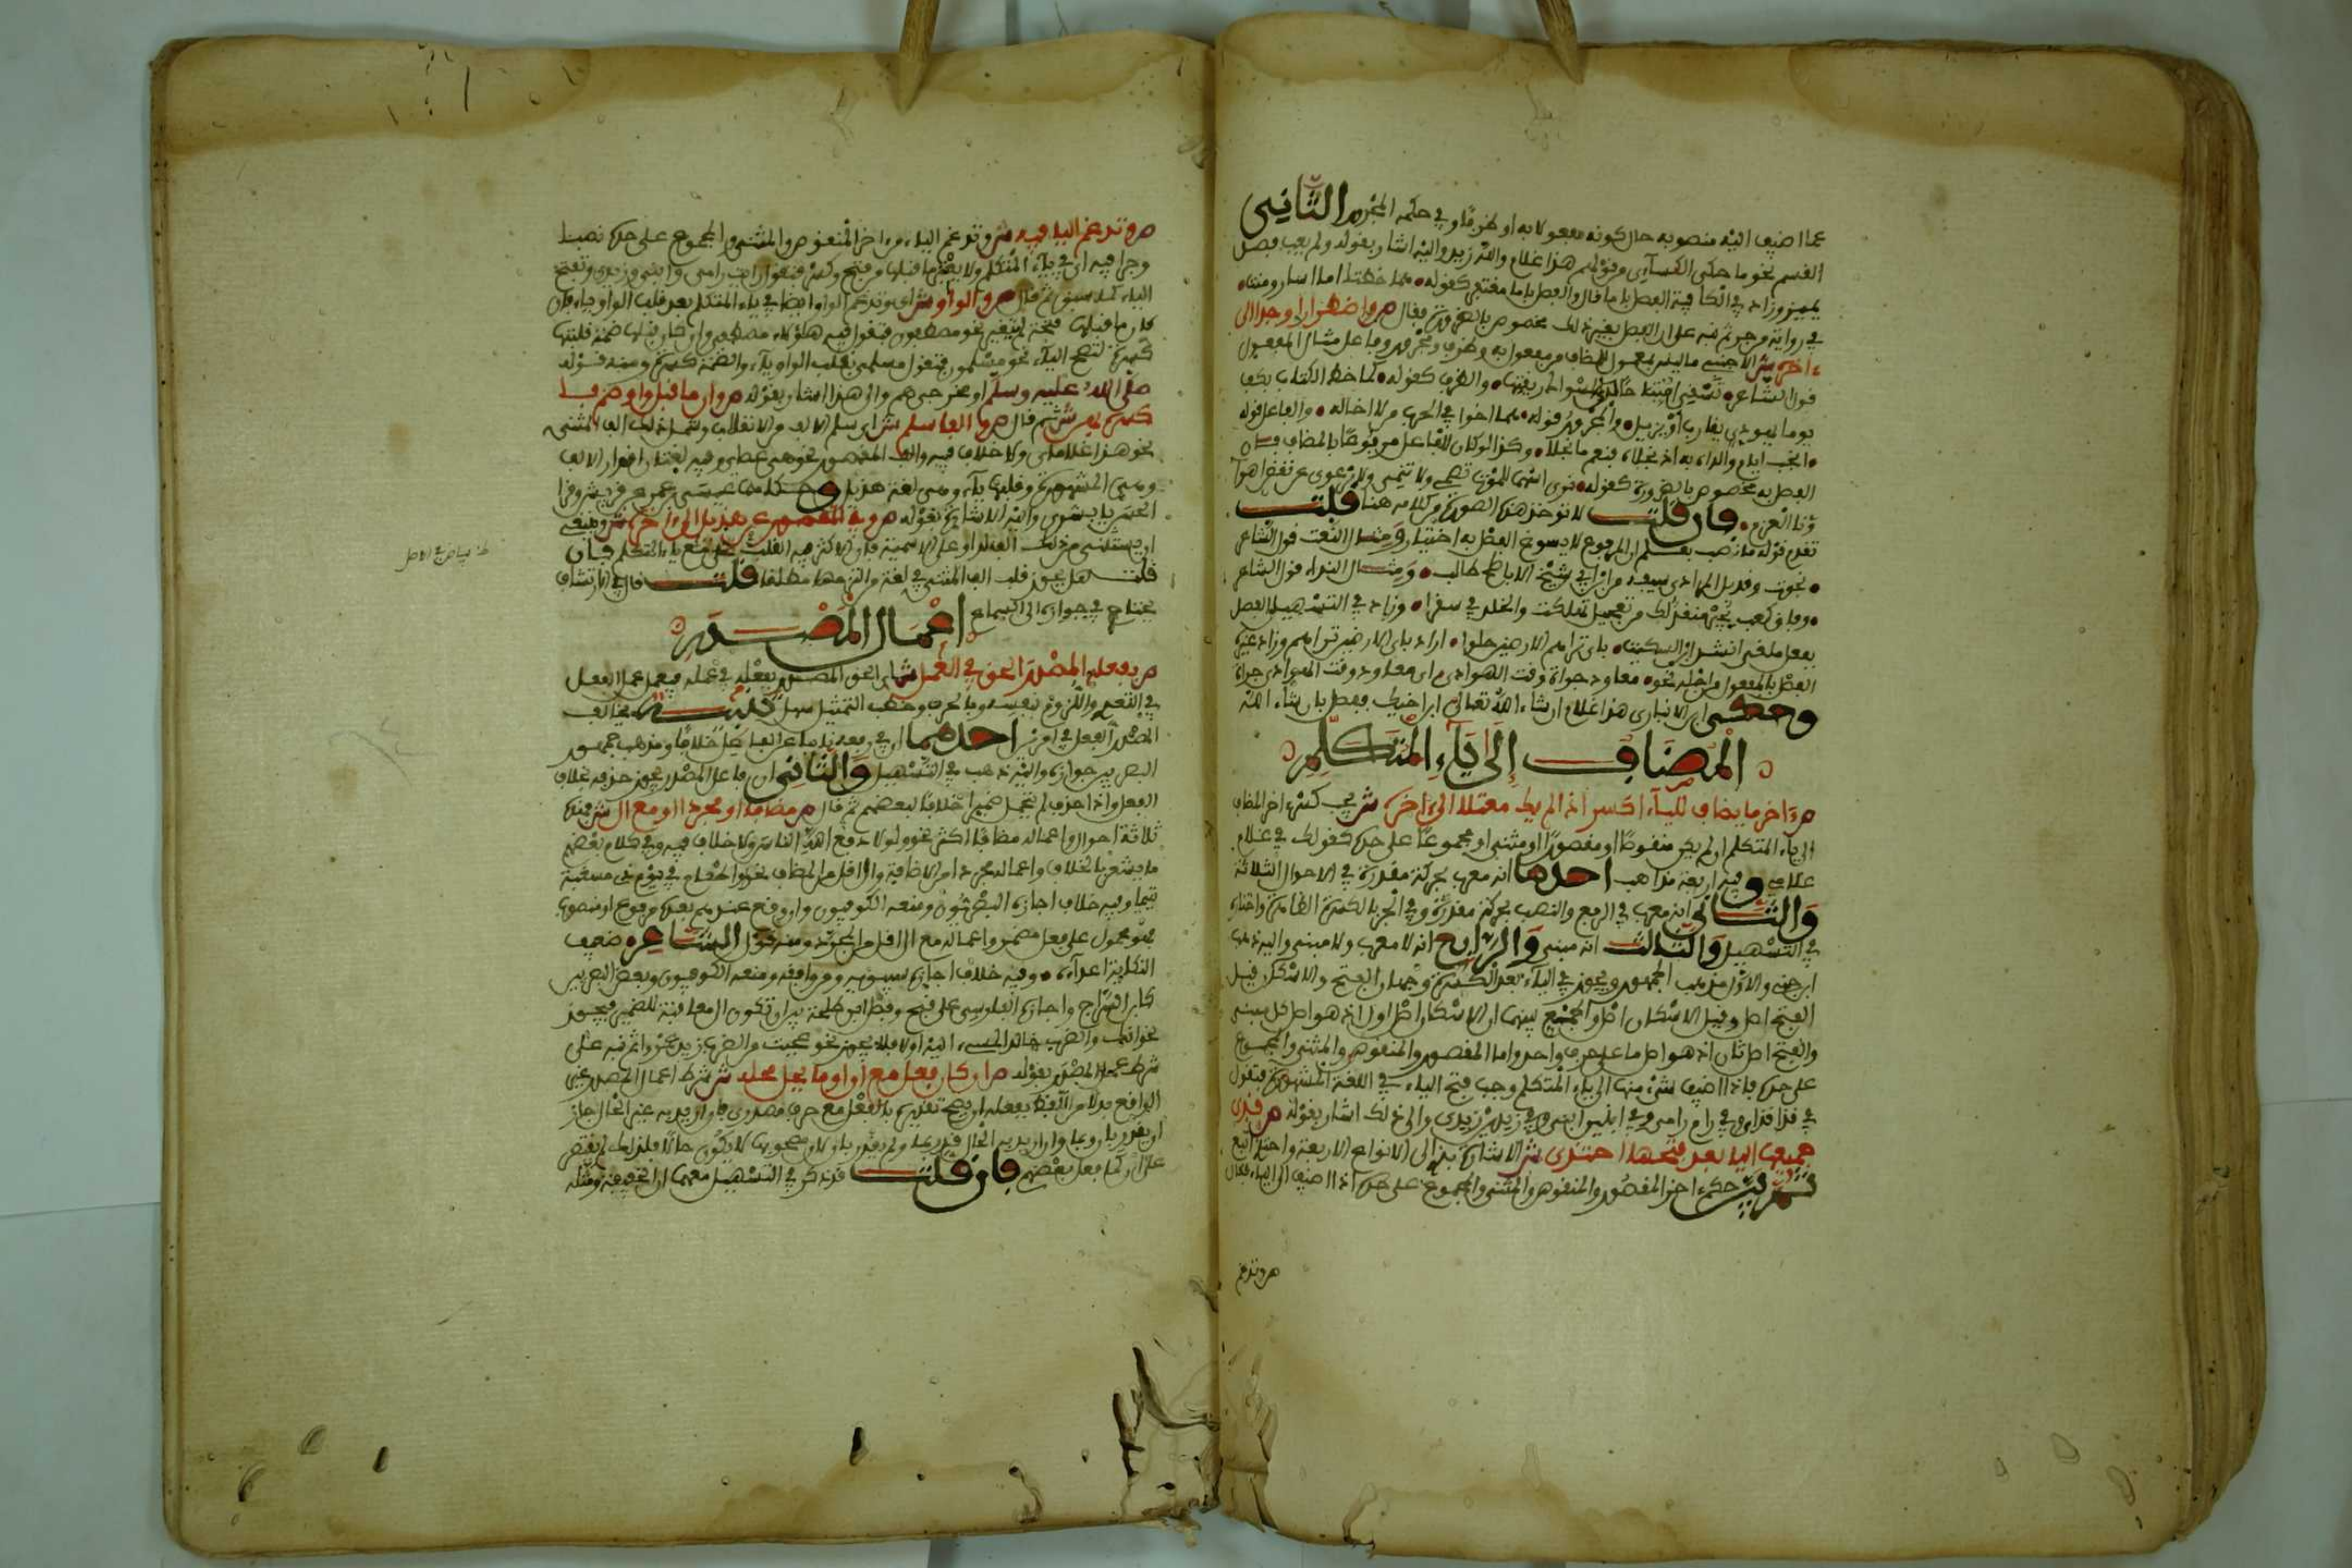 عما اضيف اليه منصوبه حال كونه مفعولا به او ظرفا وفي حكمه المجرور الثاني
القسم نحو ما حكى الكسائي من قولهم هذا غلام والله زيد واليه اشار بقوله ولم يعب فصل
يمين وزاد في الكافية الفصل باما قال والفصل باما مغتفر كقوله هما خطتا اما اسار ومنة
في رواية من جر ثم نبه على ان الفصل بغير ذلك مخصوص بالضرورة فقال ص واضطرارا وجدا
ش الاجنبي ما ليس بمعمول للمضاف من مفعول به وظرف ومجرور وفاعل مثال المفعول
قول الشاعر تسقي امتياحا ندى المسواك ريقتها والظرف كقوله كما خط الكتاب بكف
يوما يهودي يقارب او يزيل والمجرور قوله هما اخوا في الحرب من لا اخا له والفاعل قوله
انجب ايام والداه به اذ نجلاه فنعم ما نجلا وكذا لو كان الفاعل مرفوعا بالمضاف فان
الفصل به مخصوص بالضرورة كقوله نرى اسهما للموت تصمي ولا تنمي ولا نرعوي عن نقض اهواؤ
نا العزم فان قلت لا توخذ هذه الصورة من كلامه هنا قلت
تقدم قوله ما نصب يعلم ان المرفوع لا يسوغ الفصل به اختيارا ومثال النعت قول الشاعر
نجوت وقد بل المرادي سيفه من ابن ابي شيخ الاباطح طالب ومثال النداء قول الشاعر
وفاق كعب بجير منقذ لك من تعجيل تهلكة والخلد في سقرا وزاد في التسهيل الفصل
بفعل ملغى انشد ابن السكيت باي تراهم الارضين حلوا اراد باي الارضين تراهم وزاد غيره
الفصل بالمفعول من اجله نحو معاود جراة وقت الهوادي اي معاود وقت الهوادي جراة
وحكى ابن الانباري هذا غلام ان شاء الله تعالى ابن اخيك ففصل بان شاء الله
المضاف إلى ياء المتكلم
ص ءاخر ما يضاف للياء اكسر اذا لم يك معتلا الى ءاخره ش يجب كسر ءاخر المضاف
الى ياء المتكلم ان لم يكن منقوصا او مقصورا او مثنى او مجموعا على حده كقولك في غلام
غلامي وفيه اربعة مذاهب احدها انه معرب بحركة مقدرة في الاحوال الثلاثة
والثاني انه معرب في الرفع والنصب بحركة مقدرة وفي الجر بالكسرة الظاهرة واختاره
في التسهيل والثالث انه مبني والرابع انه لا معرب ولا مبني واليه ذهب
ابن جني والاول مذهب الجمهور ويجوز في الياء بعد الكسرة وجهان الفتح والاسكان قيل
الفتح اصل وقيل الاسكان اصل والجمع بينهما ان الاسكان اصل اول اذ هو اصل كل مبني
والفتح اصل ثان اذ هو اصل ما على حرف واحد واما المقصور والمنقوص والمثنى والمجموع
على حده فاذا اضيف شيء منها الى ياء المتكلم وجب فتح الياء في اللغة المشهورة فتقول
في قذا قذاي وفي رام رامي وفي ابنين ابني وفي زيدين زيدي والى ذلك اشار بقوله ص فذي
جميعها اليا بعد فتحها احتذي ش الاشارة بذي الى الانواع الاربعة واحتذى اتبع
ثم بين حكم ءاخر المقصور والمنقوص والمثنى والمجموع على حده اذا اضيف الى الياء فقال
ص وتدغم
ص وتدغم اليا فيه ش وتدغم الياء من ءاخر المنقوص والمثنى والمجموع على حده نصبا
وجرا فيه اي في ياء المتكلم ولا يغير ما قبلها من فتح وكسر فتقول رايت رامي وابني وزيدي وتفتح
الياء كما سبق ثم قال ص والواو ش اي وتدغم الواو ايضا في ياء المتكلم بعد قلب الواو ياء فان
كان ما قبلها فتحة لم يتغير نحو مصطفون فتقول فيه هؤلاء مصطفي وان كان قبلها ضمة قلبتها
كسرة لتصح الياء نحو مسلمون فتقول مسلمي بقلب الواو ياء والضمة كسرة ومنه قوله
صلى الله عليه وسلم او مخرجي هم والى هذا اشار بقوله ص وان ما قبل واو ضم فا
كسره يهن ش ثم قال ص والفا سلم ش اي سلم الالف من الانقلاب وشمل ذلك الف المثنى
نحو هذان غلاماي ولا خلاف فيه والف المقصور نحو هي عصاي وفيه لغتان اقرار الالف
وهي المشهورة وقلبها ياء وهي لغة هذيل وحكاها عيسى بن عمر عن قريش وقرا
الحسن يا بشري واليه الاشارة بقوله ص وفي المقصور عن هذيل الى ءاخره ش
ان يستثنى من ذلك الف لدى وعلى الاسمية فان الاكثر فيه القلب مع ياء المتكلم فان
قلت هل يجوز قلب الف المثنى في لغة من التزمها مطلقا قلت قال في الارتشاف
يحتاج في جوازه الى سماع
اعمال المصدر
ص بفعله المصدر الحق في العمل ش اي الحق المصدر بفعله في عمله فيعمل عمل الفعل
في التعدي واللزوم بنفسه وبالحرف وحذف التمثيل سهل تنبيه يخالف
المصدر الفعل في امرين احدهما ان في رفعه نائبا عن الفاعل خلافا ومذهب جمهور
البصريين جوازه واليه ذهب في التسهيل والثاني ان فاعل المصدر يجوز حذفه بخلاف
الفعل واذا حذف لم يتحمل ضميرا خلافا لبعضهم ثم قال ص مضافا او مجردا او مع ال ش فهذه
ثلاثة احوال واعماله مضافا اكثر نحو ولولا دفع الله الناس ولا خلاف فيه وفي كلام بعضهم
ما يشعر بالخلاف واعماله مجردا من الاضافة وال اقل من المضاف نحو او اطعام في يوم ذي مسغبة
يتيما وفيه خلاف اجازه البصريون ومنعه الكوفيون وان وقع عندهم بعده مرفوع او منصوب
فهو محمول على فعل مضمر واعماله مع ال اقل من المجرد ومنه قول الشاعر ضعيف
النكاية اعداءه وفيه خلاف اجازه سيبويه ومن وافقه ومنعه الكوفيون وبعض البصريين
كابن السراج واجازه الفارسي على قبح وفصل ابن طلحة بين ان تكون ال معاقبة للضمير فيجوز
نحو انك والضرب خالدا المسيء اليه اولا فلا يجوز نحو عجبت من الضرب زيد عمرا ثم نبه على
شرط عمل المصدر بقوله ص ان كان فعل مع أن او ما يحل محله ش شرط اعمال المصدر غير
الواقع بدلا من اللفظ بفعله ان يصح تقديره بالفعل مع حرف مصدري فان اريد به غير الحال جاز
ان يقدر بان وبما وان اريد به الحال قدر بما ولم يقدر بان لان مصحوبها لا يكون حالا فلذلك لم يقتصر
على ان كما فعل بعضهم فان قلت قد ذكر في التسهيل معهما ان المخففة ومثله